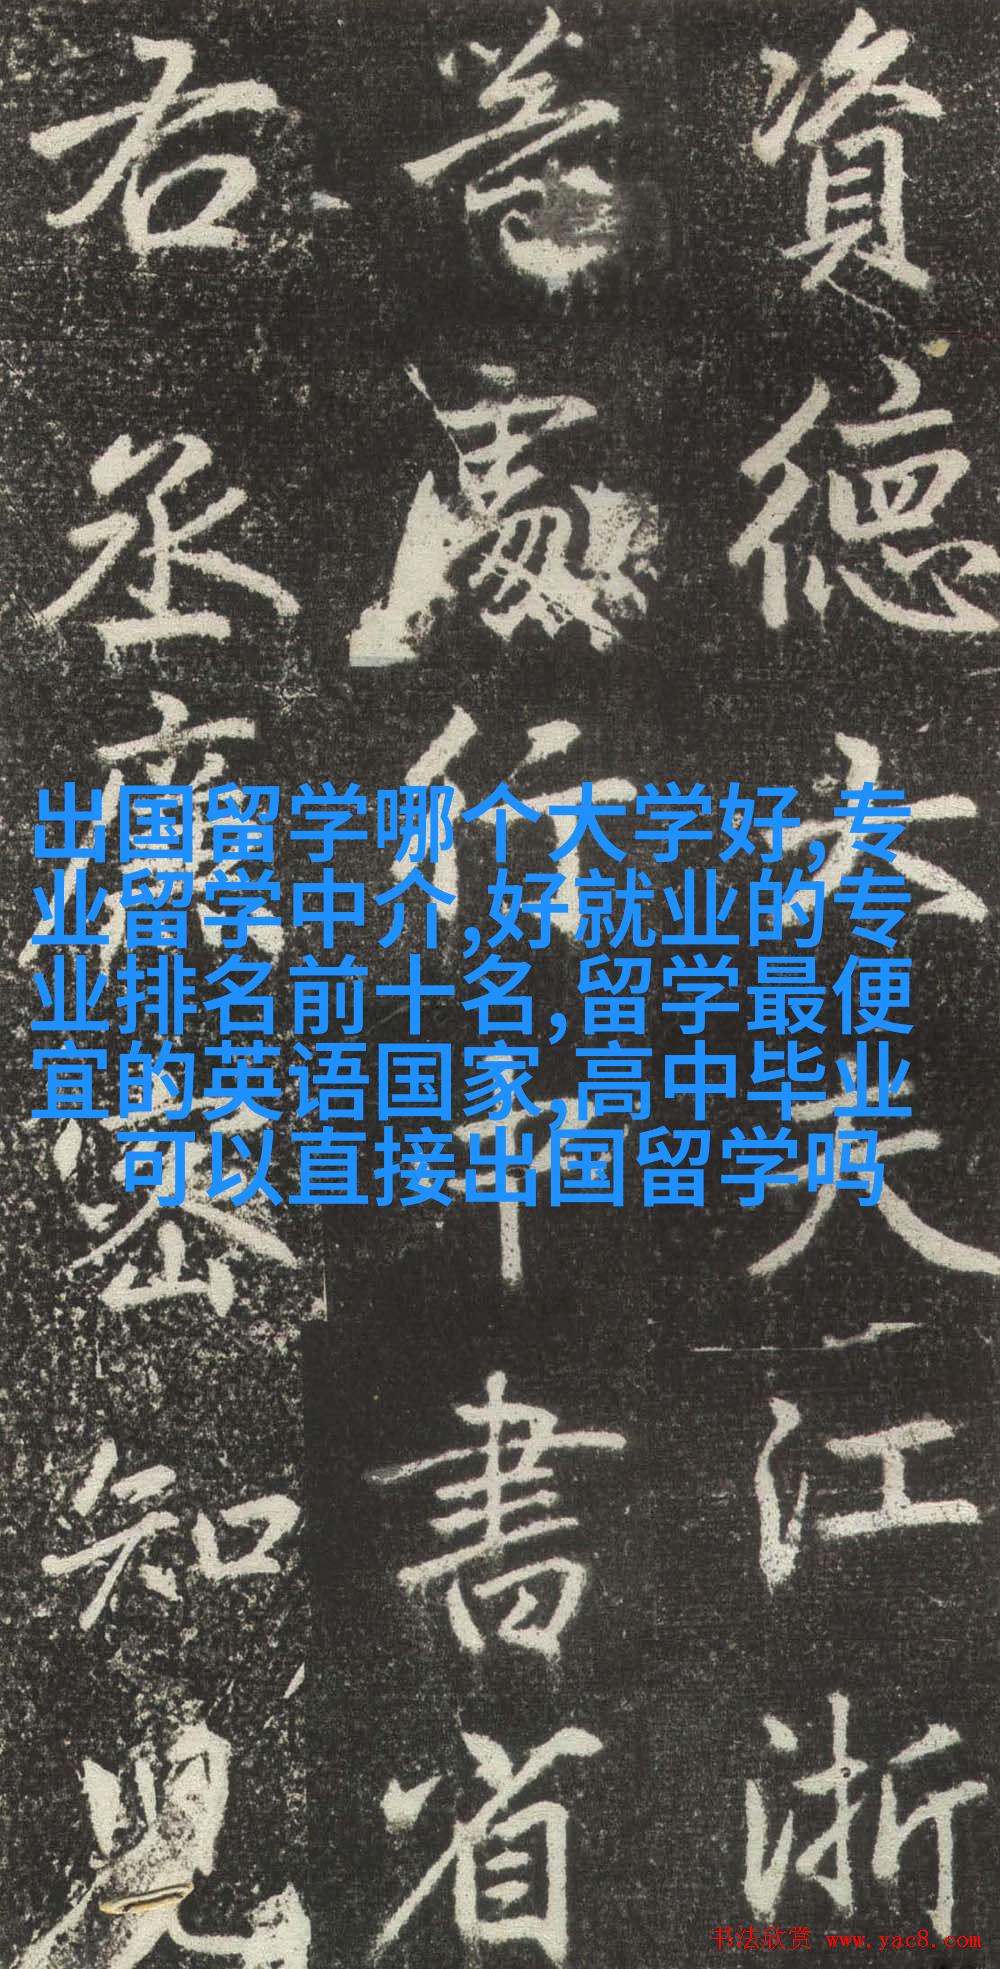 資德大夫江浙
荅處行中書省
右丞廉密知兒
出国留学哪个大学好,专
业留学中介,好就业的专
业排名前十名,留学最便
宜的英语国家,高中毕业
可以直接出国留学吗
书法欣赏 www.yac8.com